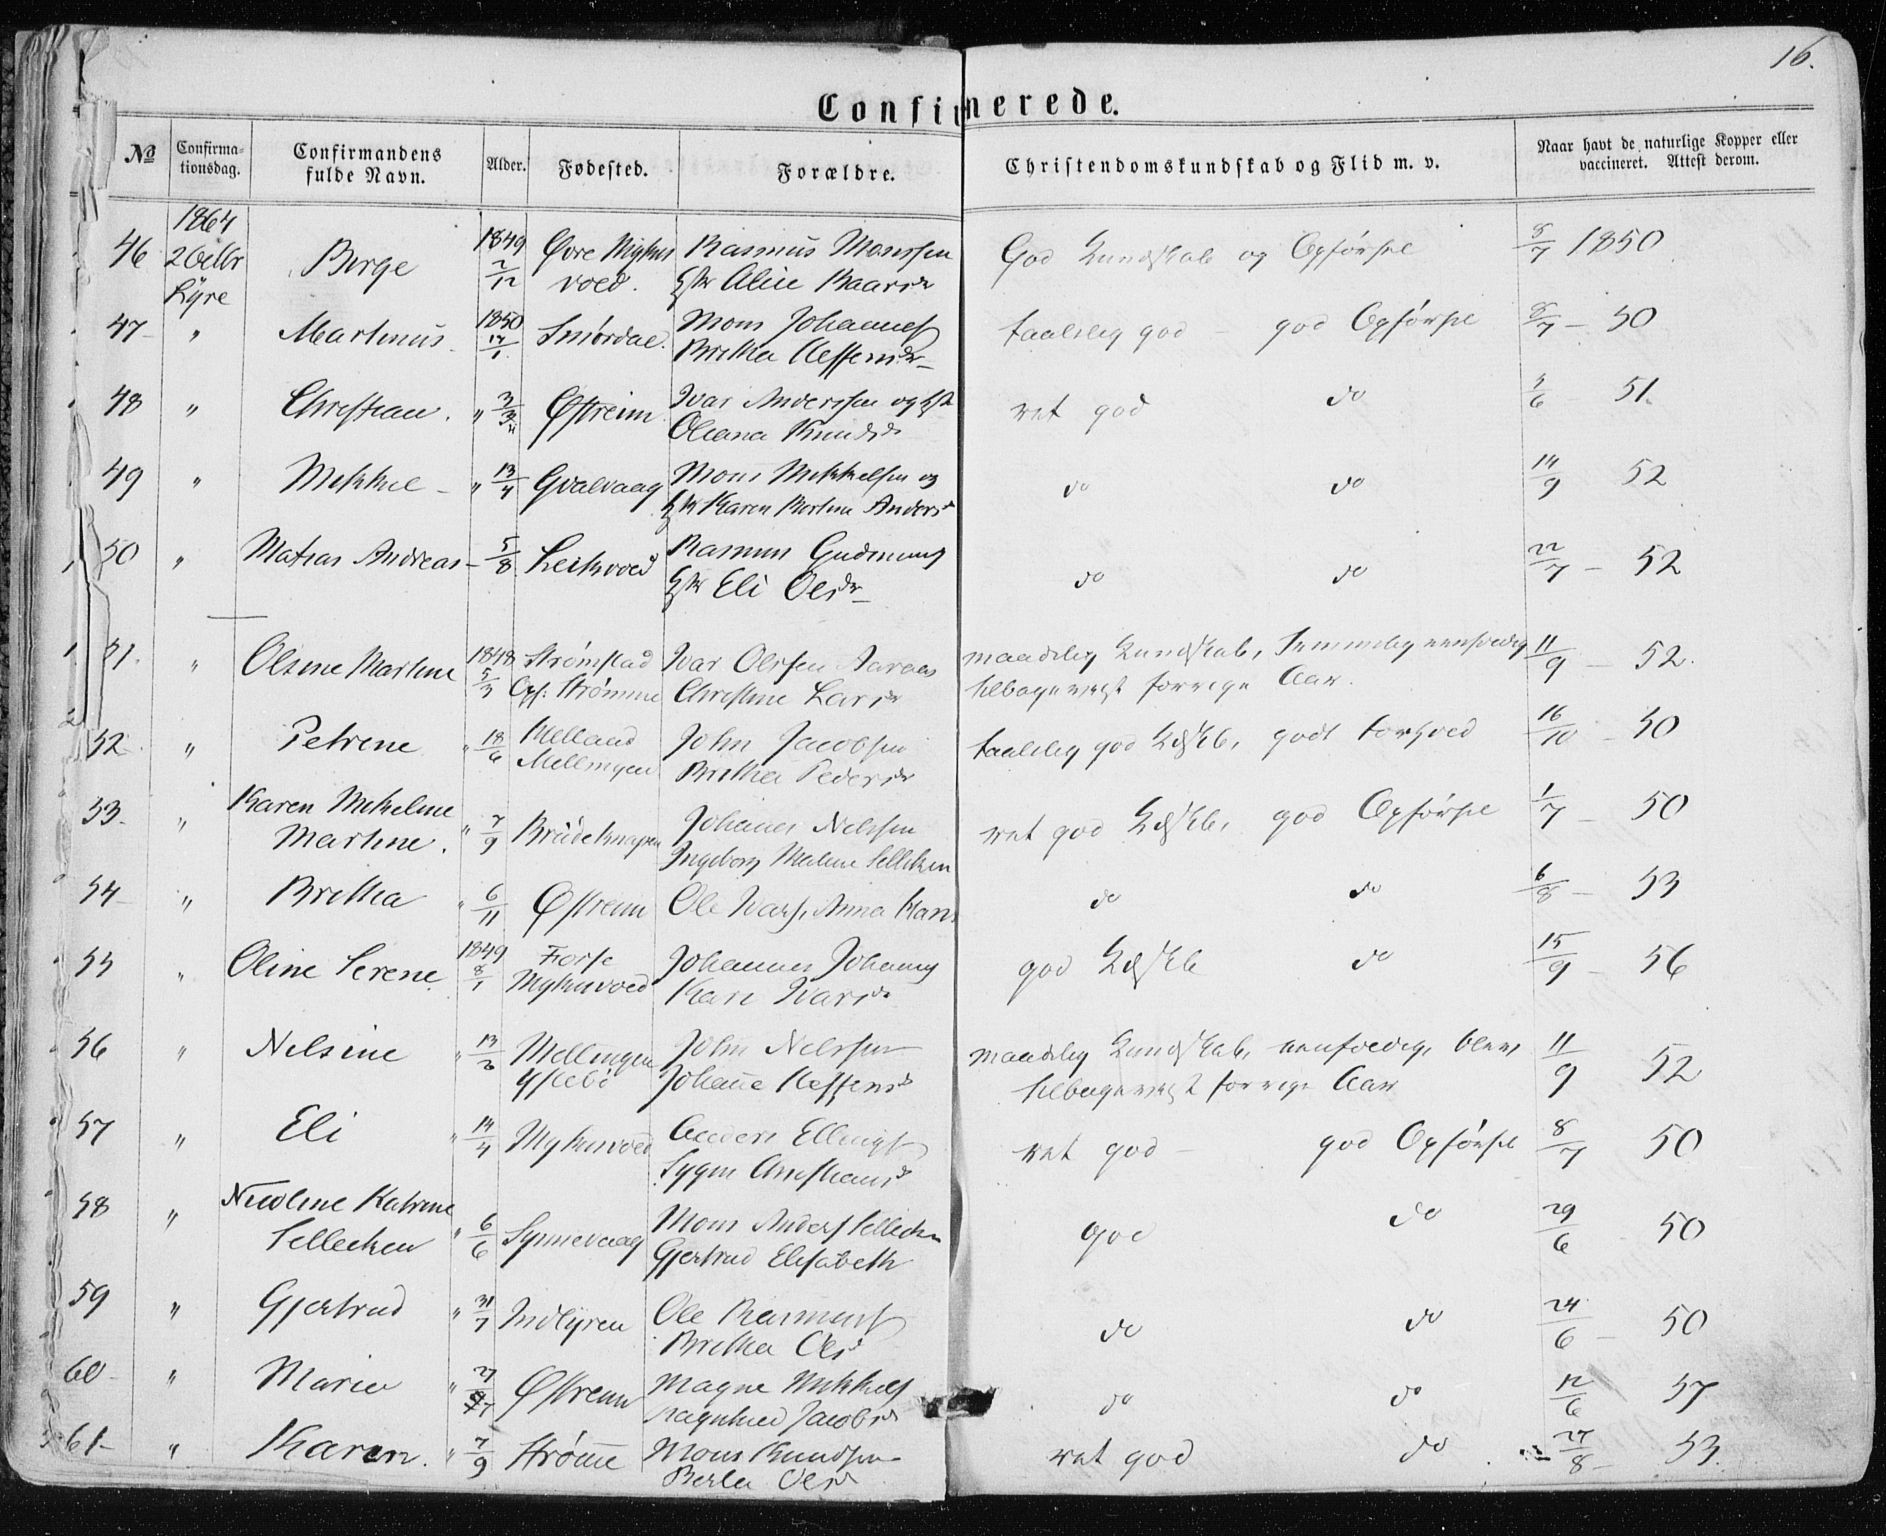 16.
Confirmerede.
№ Confirma-tionsdag. Confirmandens fulde Navn. Alder. Fødested. Forældre. Christendomskundskab og Flid m. v. Naar havt de naturlige Kopper eller vaccineret. Attest derom.
46 1864 2 Octbr Lyre Berge 1849 2/12 Øvre Mykis voed. Rasmus Monssen Alice Kaarsdr God Kundskab og Opførsel 8/7 1850
47 " Martinus 1850 17/1 Smørdal. Mons Johannes Britha Steffensdr taalelig god – god Opførsel 8/7 – 50
48 " Christian. " 3/3 Østreim Ivar Anderssen og Oliana Knudsd ret god do 3/6 51
49 " Mikkel – " 13/4 Gvalvaag Mons Mikkelsen og Karen Bertine Andersd do do 14/9 52
50 " Matias Andreas – 5/8 Leikvoed Rasmus Gudmunds Eli Olsdr – do do 22/7 – 52
51. " Olsine Martine 1848 5/3 Strømstad Opf: Strømme Ivar Olssen Aaraas Christine Larsdr maadelig Kundskab, temmelig eenfoldig tilbageviist forrige Aar. 11/9 – 52.
52. " Petrine " 18/6 Melland Mellingen John Jacobsen Britha Pedersdr taalelig god Kdskb, godt Forhold 16/10 – 50
53. " Karen Mikeline Martine. " 7/9 Brudeknapen Johanes Nilssen Ingeborg Maline Sellecken ret god Kdskb, god Opførsel 1/7 – 50
54 – " Britha " 6/11 Østreim Ole Ivars, Anna Hans do do 6/8 – 53
55 " Oline Serene 1849 8/1 Forse Mykisvoed Johannes Johanns Kari Ivarsdr god Kdskb do 15/9 – 56
56 " Nilsine " 13/2 Mellingen John Nilssen Johanne Steffensd maadelig Kundskab, eenfoldig, blev tilbageviist forrige Aar 11/9 52
57 " Eli " 14/4 Mykisvoed Anders Ellings Sygni Christiansd ret god – god Opførsel 8/7 50
58 " Nicoline Katrine Sellecken " 6/6 Synnevaag Mons Anders Sellecken Gjertrud Elisabeth god do 29/6 50
59 " Gjertrud " 31/7 Indlyren Ole Rasmuss Britha Olsd do do 24/6 – 50
60 – " Marie " 27/7 Østreim Magne Mikkels Ragnhild Jacobsd do do 12/6 57
61 – " Karen. " 7/9 Strømme Mons Knudsen Berta Olsd ret god do 27/8 – 53.